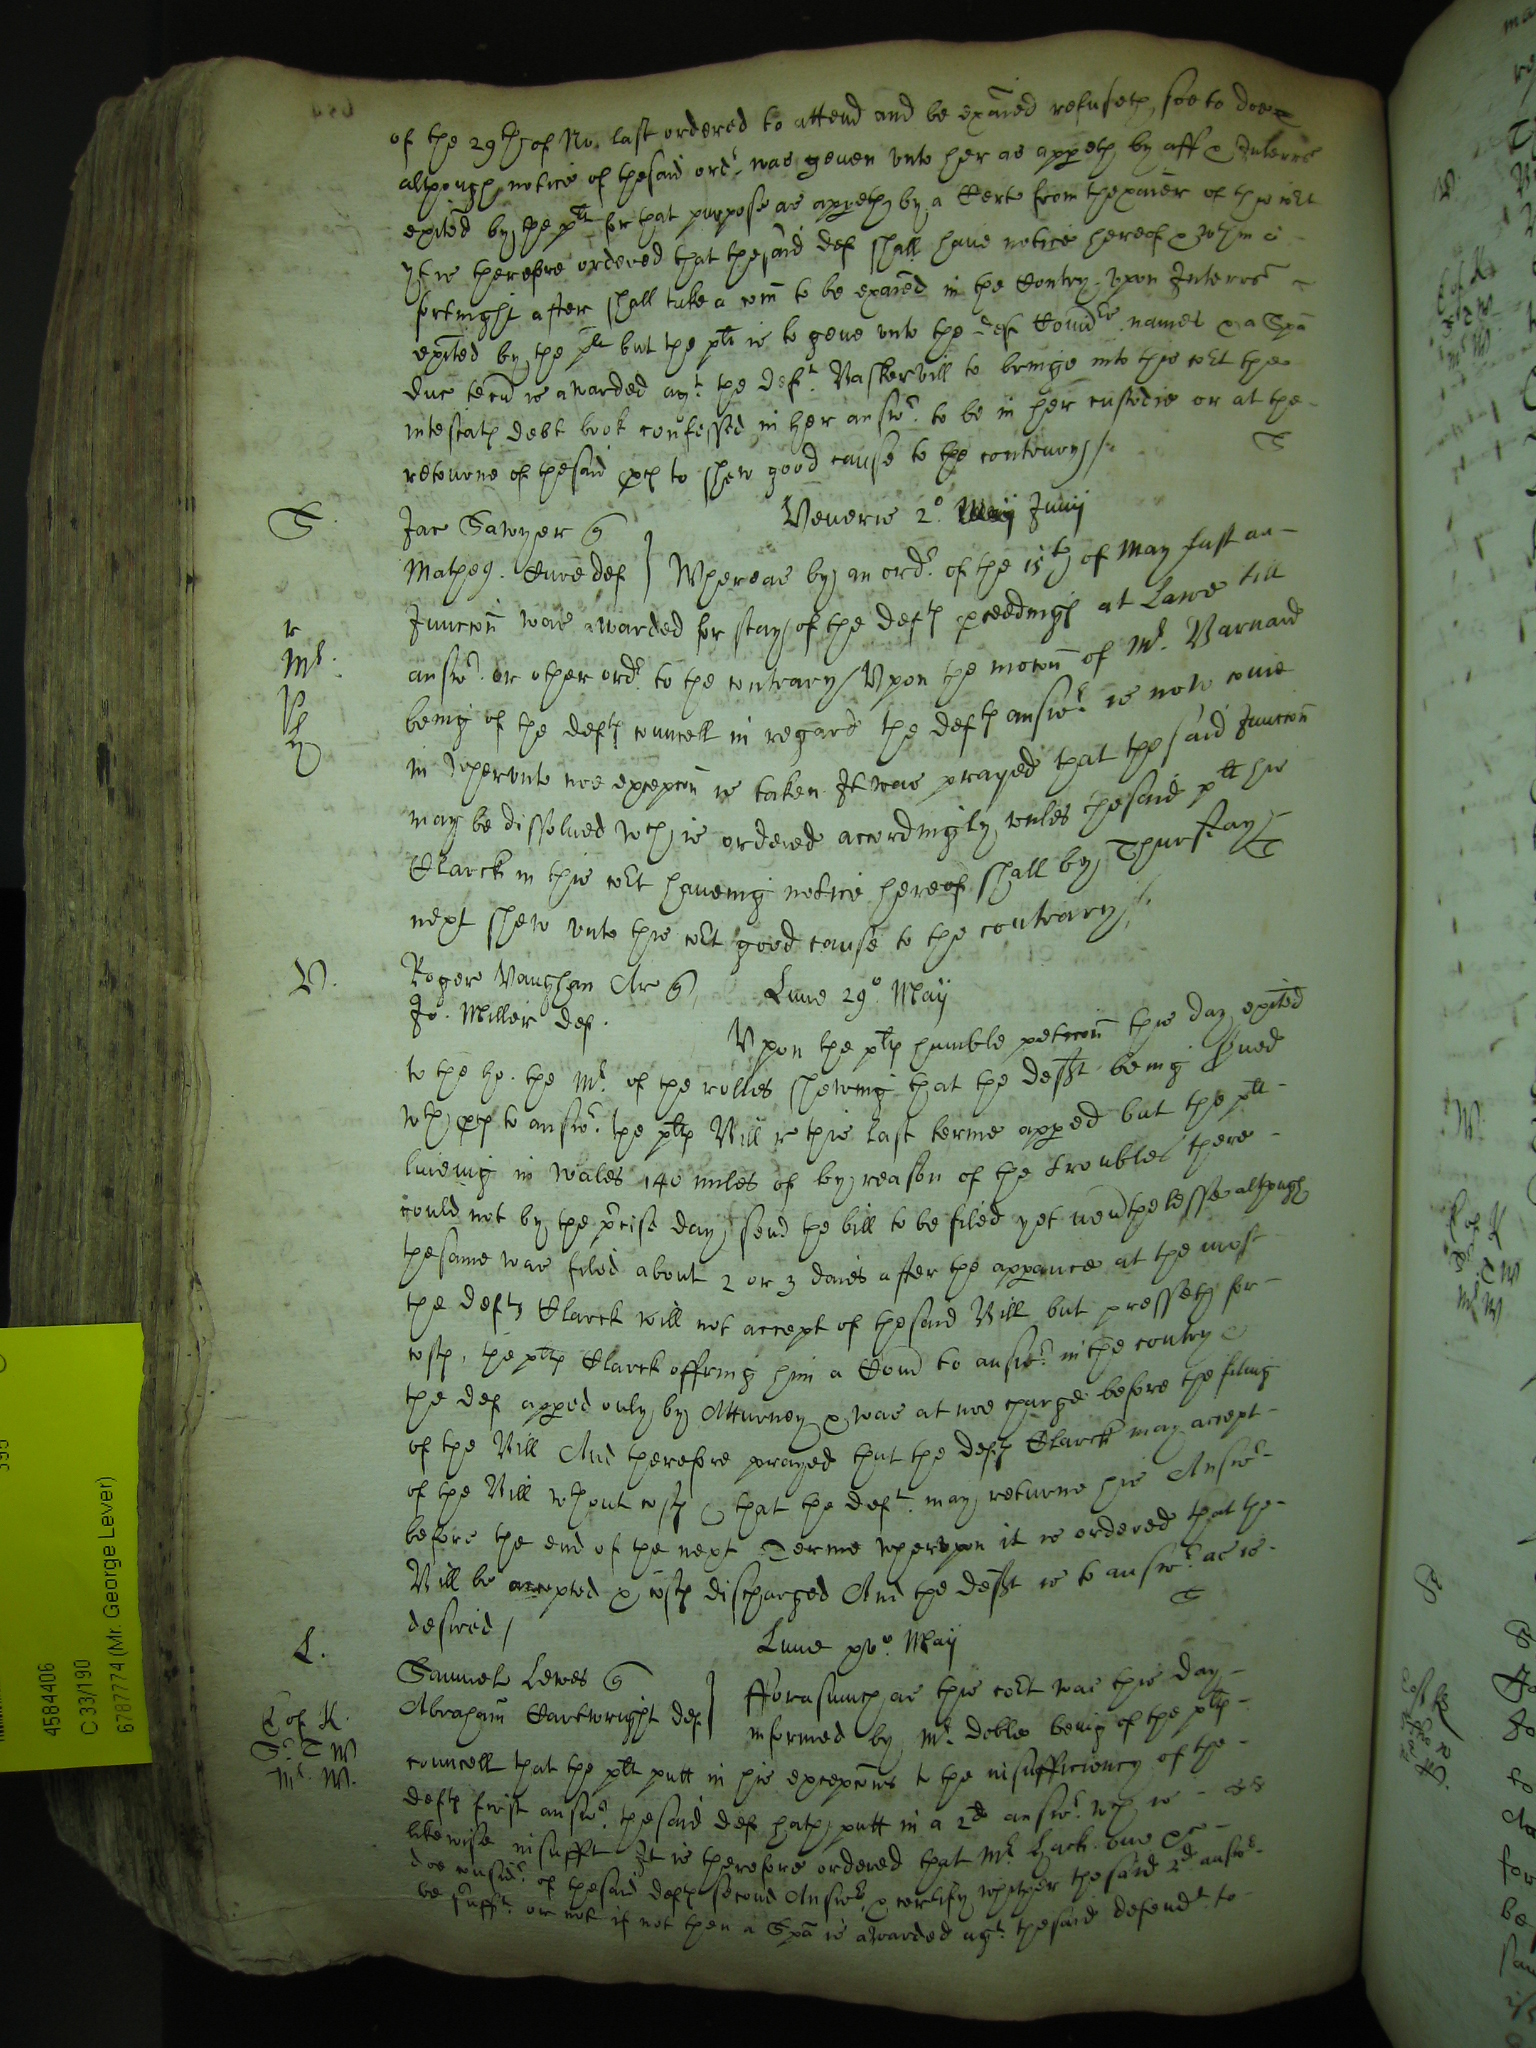 of the 29th of No: last ordered to attend and be exaied refuseth soe to doe
although notice of thesaid ordr was geven vnto her as appeth by aff & Interrs
exited by the plt for that purpose as appeth by a Certe from thexaier of this cort
It is therefore ordered that thesaid def shall haue notice hereof & wthin a
fortnight after shall take a com to be exaied in the Contry vpon Interrs
exited by the plt but the plt is to geve vnto the def Comrs names & a Spa
duc tecu is awarded agt the deft Baskervill to bringe into this cort the
intestats debt book confessed in her answr to be in her custodie or at the
retourne of thesaid pces to shew good cause to the contrary
S
S
Jac Sawyer
Veneris 2o Junij
Mathew def
Whereas by an ordr of the 15th of May last an
Junccon was awarded for stay of the defts pceedings at Lawe till
answr or other ordr to the contrary Vpon the mocon of Mr Barnard
being of the defts councell in regard the defts answr is now come
in wherevnto noe excepcon is taken It was prayed that the said Junccon
may be dissolued wch is ordered accordingly vnles thesaid plt his
Clarck in this cort haueing notice hereof shall by Thursday
next shew vnto this cort good cause to the contrary
V.
Roger Vaughan Ar
Lune 29o Maij
Jo. Miller def.
Vpon the plts humble peticon this day exited
to the ho. the Mr of the rolles shewing that the deft being serued
wth pces to answr the plts Bill this last terme apped but the plt
liueing in Wales 140 miles of by reason of the troubles there
could not by the pcise day send the bill to be filed yet neuthelesse although
thesame was filed about 2 or 3 daies after the apparance at the most
the defts Clarck will not accept of thesaid Bill but presseth for
costs, the plts Clarck offring him a Com to answr in the contry
the def apped only by Atturney & was at noe charge before the filing
of the Bill And therefore prayed that the defts Clarck may accept
of the Bill wthout costs & that the deft may returne his Answr
before the end of the next Terme whervpon it is ordered that the
Bill be accepted & costs discharged And the deft is to answr as is
desired
L.
Lune Maij
Samuel Lewes
fforasmuch as this cort was this day
Abraham Cartwright def
informed by Mr Dobles being of the plts
councell that the plt putt in his excepcons to the insufficiency of the
defts first answr thesaid def hath putt in a 2d answr wch is
likewise insufft It is therefore ordered that Mr one
doe considr of thesaid defts second Answr & certify whether thesaid 2d answr
be sufft or not if not then a Spa is awarded agt thesaid defendt to
4584406
C 33/190
6787774 (Mr. George Lever)